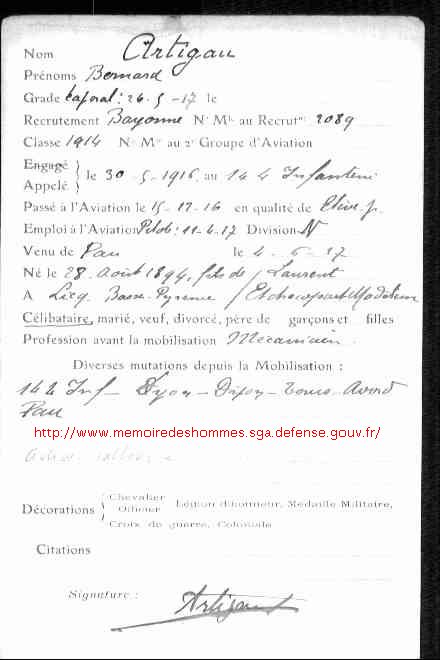 Nom Artigau
Prénoms Bernard
Grade Caporal : 26-5-17 le
Recrutement Bayonne No Mle au Recrutnt 2089
Classe 1914 No Mle au 2e Groupe d'Aviation
Engagé
Appelé } le 30-5-1916, au 144 Infanterie
Passé à l'Aviation le 15-12-16 en qualité de Elève p.
Emploi à l'Aviation Pilote : 11-4-17 Division N
Venu de Pau le 4-6-17
Né le 28 Août 1894, fils de / Laurent
A Licq Basse-Pyrénée / Madeleine
Célibataire, marié, veuf, divorcé, père de garçons et filles
Profession avant la mobilisation Mécanicien
Diverses mutations depuis la Mobilisation :
144 Inf - Lyon - Dijon - Tours - Avord
Pau
http://www.memoiredeshommes.sga.defense.gouv.fr/
Décorations { Chevalier
Officier Légion d'honneur, Médaille Militaire,
Croix de guerre, Coloniale
Citations
Signature :
Artigau